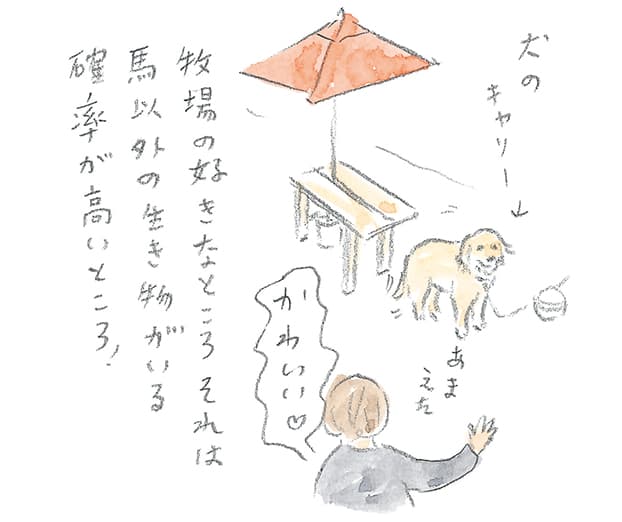 犬の
キャリー→
牧場の好きなところ それは
馬以外の生き物がいる
確率が高いところ!
かわいい♡
あま
えた